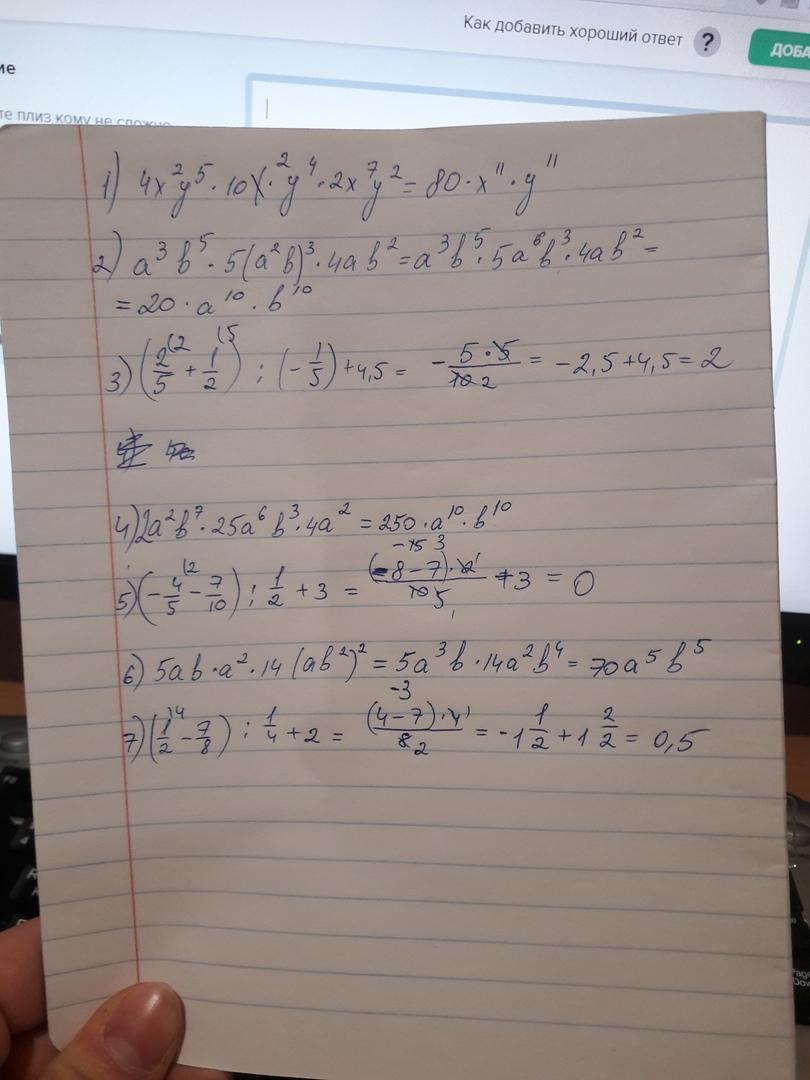 Как добавить хороший ответ ?
ДОБА
ие
те плиз кому не сложно
1) 4x²y⁵ · 10x² · y⁴ · 2x⁷y² = 80 · x¹¹ · y¹¹
2) a³b⁵ · 5(a²b)³ · 4ab² = a³b⁵ · 5a⁶b³ · 4ab² =
= 20 · a¹⁰ · b¹⁰
3) (2/5 + 1/2) : (-1/5) + 4,5 = - 5·5/10 2 = -2,5 + 4,5 = 2
4) 2a²b⁷ · 25a⁶b³ · 4a² = 250 · a¹⁰ · b¹⁰
5) (-4/5 - 7/10) : 1/2 + 3 = (-8-7)·2/10 5 + 3 = 0
6) 5ab · a² · 14(ab²)² = 5a³b · 14a²b⁴ = 70a⁵b⁵
7) (1/2 - 7/8) : 1/4 + 2 = (4-7)·4/8 2 = -1 1/2 + 1 2/2 = 0,5